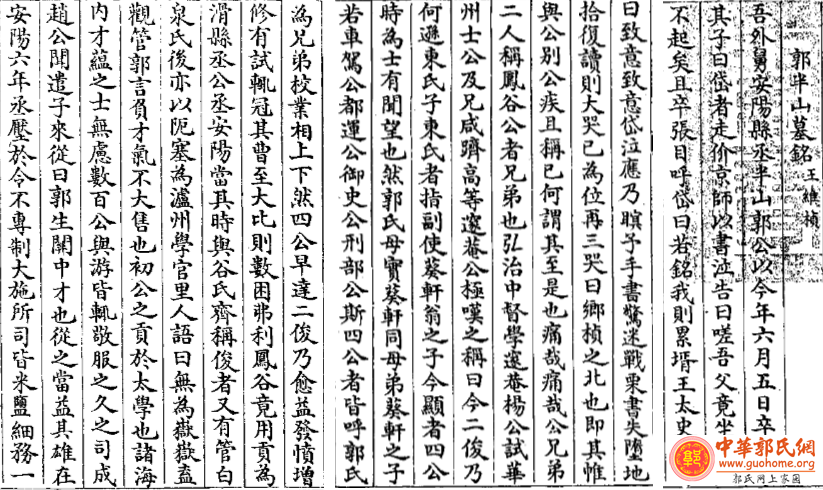 郭半山墓銘王維楨
吾外舅安陽縣丞半山郭公以今年六月五日卒
其子曰岱者走价京師以書泣告曰嗟吾父竟坐
不起矣且卒張目呼岱曰若銘我則累壻王太史
曰致意致意岱泣應乃瞑予手書驚迷戰栗書失墮地
拾復讀則大哭已為位再三哭曰鄉楨之北也即其惟
與公別公疾且稱已何謂其至是也痛哉痛哉公兄弟
二人稱鳳谷公者兄弟也弘治中督學邃菴楊公試華
州士公及兄咸躋高等邃菴公極嘆之稱曰今二俊乃
何遜東氏子東氏者指副使葵軒翁之子今顯者四公
時為士有聞望也然郭氏母實葵軒同母弟葵軒之子
若車駕公都運公御史公刑部公斯四公者皆呼郭氏
為兄弟校業相上下然四公早達二俊乃愈益發憤增
修有試輒冠其曹至大比則數困弗利鳳谷竟用貢為
滑縣丞公丞安陽當其時與谷氏齊稱俊者又有管白
泉氏後亦以阨塞為瀘州學官里人語曰無為嶽嶽盍
觀管郭言負才氣不大售也初公之貢於太學也諸海
内才蘊之士無慮數百公與游皆輒敬服之久之司成
趙公聞遣子來從曰郭生關中才也從之當益其雄在
安陽六年丞壓於令不專制大施所司皆米鹽細務一
中華郭氏網
www.guohome.org
郭氏网上家园